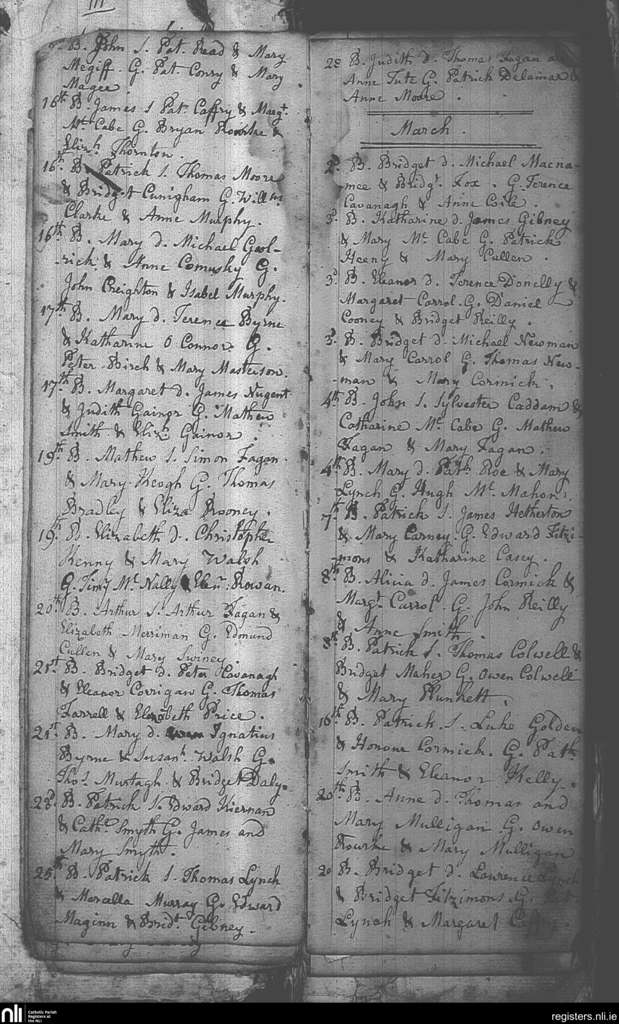 B. John S. Pat. Read & Mary
Megiff. G. Pat. Conry & Mary
Magee.
16th B. James S Pat. Caffry & Margt.
Mc. Cabe G. Bryan Rourke &
Elizh. Thornton.
16th B. Patrick S. Thomas Moore
& Bridget Cunigham G. Willm
Clarke & Anne Murphy.
16th B. Mary d. Michael Gool-
-rick & Anne Comusky G.
John Creighton & Isabel Murphy.
17th B. Mary d. Terence Byrne
& Katharine O Connor G.
Peter Birch & Mary Masterson.
17th B. Margaret d. James Nugent
& Judith Gainor G. Mathew
Smith & Elizh Gainor.
19th B. Mathew S. Simon Fagan
& Mary Keogh G. Thomas
Bradley & Eliza Rooney.
19th B. Elizabeth d. Christopher
Kenny & Mary Walsh
G. Timy Mc. Nally & Elenr. Rowan.
20th B. Arthur S. Arthur Fagan &
Elizabeth Merriman G. Edmund
Cullen & Mary Swiney.
21st B. Bridget d. Peter Cavanagh
& Eleanor Corrigan G. Thomas
Farrell & Elizabeth Price.
21st B. Mary d. Ignatius
Byrne & Susanh. Walsh G.
Thos. Murtagh & Bridget Daly.
22d B. Patrick S. Edward Kiernan
& Cathe. Smyth G. James and
Mary Smyth.
25th B. Patrick S. Thomas Lynch
& Marcella Murray G. Edward
Maginn & Bridt. Gibney.
28 B. Judith d. Thomas Fagan
Anne Tute G. Patrick Delamar &
Anne Moore.
March.
2d B. Bridget d. Michael Macna-
mee & Bridgt. Fox. G. Ference
Cavanagh & Anne Coile.
3d B. Katharine d. James Gibney
& Mary Mc. Cabe G. Patrick
Heeny & Mary Cullen.
3d B. Eleanor d. Terence Donelly &
Margaret Carrol. G. Daniel
Cooney & Bridget Reilly.
3d B. Bridget d. Michael Newman
& Mary Carrol G. Thomas New-
-man & Mary Cormick.
4th B. John S. Sylvester Caddam &
Catharine Mc. Cabe G. Mathew
Fagan & Mary Fagan.
4th B. Mary d. Patk. Roe & Mary
Lynch G. Hugh Mc. Mahon.
7th B. Patrick S. James Hetherton
& Mary Carney G. Edward Fitzi-
-mons & Katharine Casey.
8th B. Alicia d. James Cormick &
Margt. Carrol. G. John Reilly
& Anne Smith.
8th B. Patrick S. Thomas Colwell &
Bridget Maher G. Owen Colwell
& Mary Plunkett.
16th B. Patrick S. Luke Golden
& Honour Cormick. G. Patk.
Smith & Eleanor Kelly.
20th B. Anne d. Thomas and
Mary Mulligan G. Owen
Rourke & Mary Mulligan
20 B. Bridget d. Lawrence Lynch
& Bridget Fitzimons G.
Lynch & Margaret
nli
Catholic Parish
Registers at
the NLI
registers.nli.ie